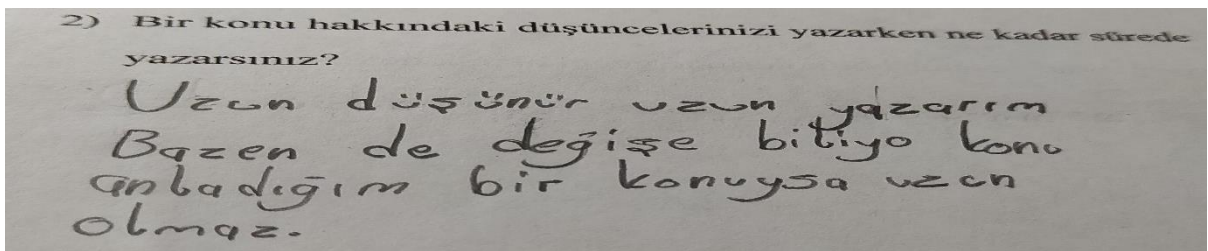 2) Bir konu hakkındaki düşüncelerinizi yazarken ne kadar sürede
yazarsınız?
Uzun düşünür uzun yazarım
Bazen de değişe bitiyo konu
anladığım bir konuysa uzun
olmaz.